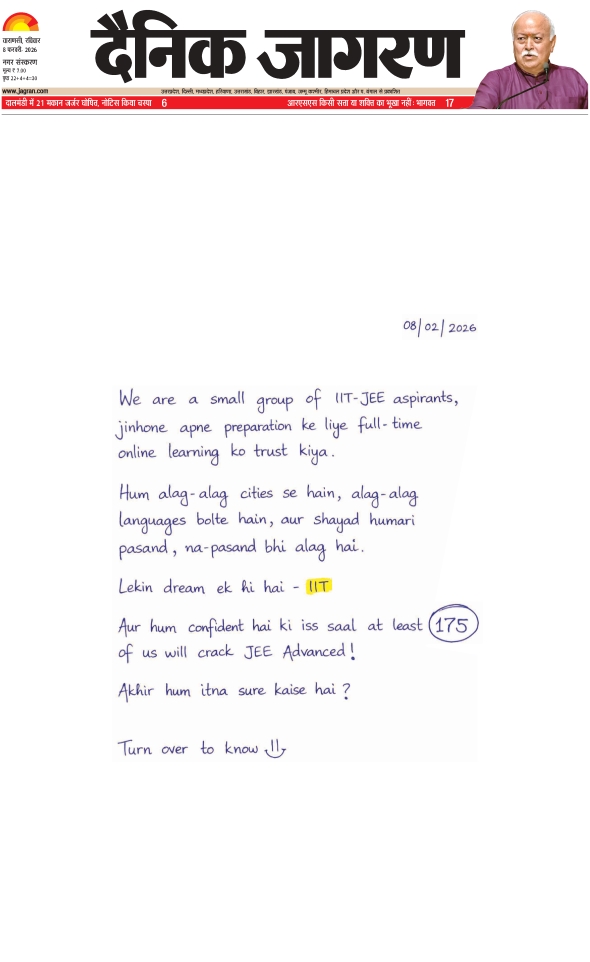 दैनिक जागरण
वाराणसी, रविवार
8 फरवरी- 2026
नगर संस्करण
मूल्य ₹ 7.00
पृष्ठ 22+4+4=30
www.jagran.com
उत्तरप्रदेश, दिल्ली, मध्यप्रदेश, हरियाणा, उत्तराखंड, बिहार, झारखंड, पंजाब, जम्मू कश्मीर, हिमाचल प्रदेश और प. बंगाल से प्रकाशित
दालमंडी में 21 मकान जर्जर घोषित, नोटिस किया चस्पा 6
आरएसएस किसी सत्ता या शक्ति का भूखा नहीं : भागवत 17
08/02/2026
We are a small group of IIT-JEE aspirants,
jinhone apne preparation ke liye full-time
online learning ko trust kiya.
Hum alag-alag cities se hain, alag-alag
languages bolte hain, aur shayad humari
pasand, na-pasand bhi alag hai.
Lekin dream ek hi hai - IIT
Aur hum confident hai ki iss saal at least 175
of us will crack JEE Advanced!
Akhir hum itna sure kaise hai ?
Turn over to know